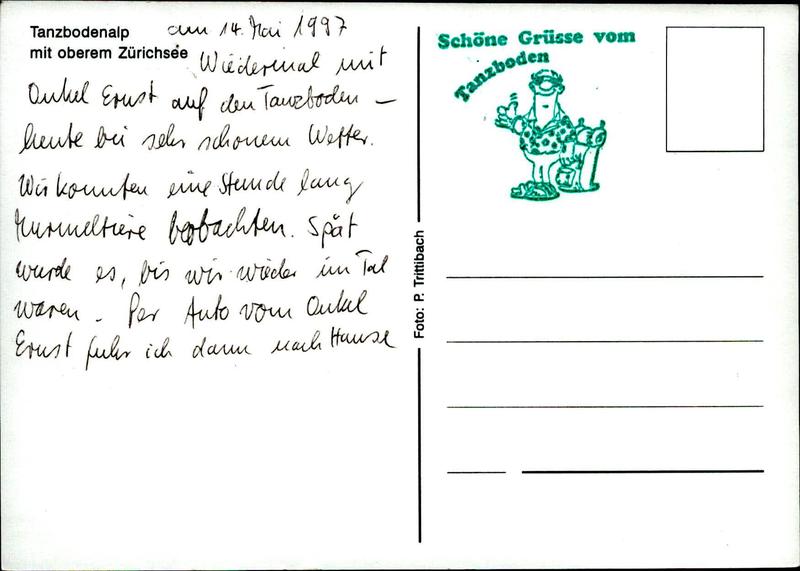 Tanzbodenalp
mit oberem Zürichsee
am 14. Mai 1997
Wiedermal mit
Onkel Ernst auf den Tanzboden –
heute bei sehr schönem Wetter.
Wir konnten eine Stunde lang
Murmeltiere beobachten. Spät
wurde es, bis wir wieder im Tal
waren. Per Auto vom Onkel
Ernst fuhr ich dann nach Hause
Foto: P. Trittibach
Schöne Grüsse vom
Tanzboden